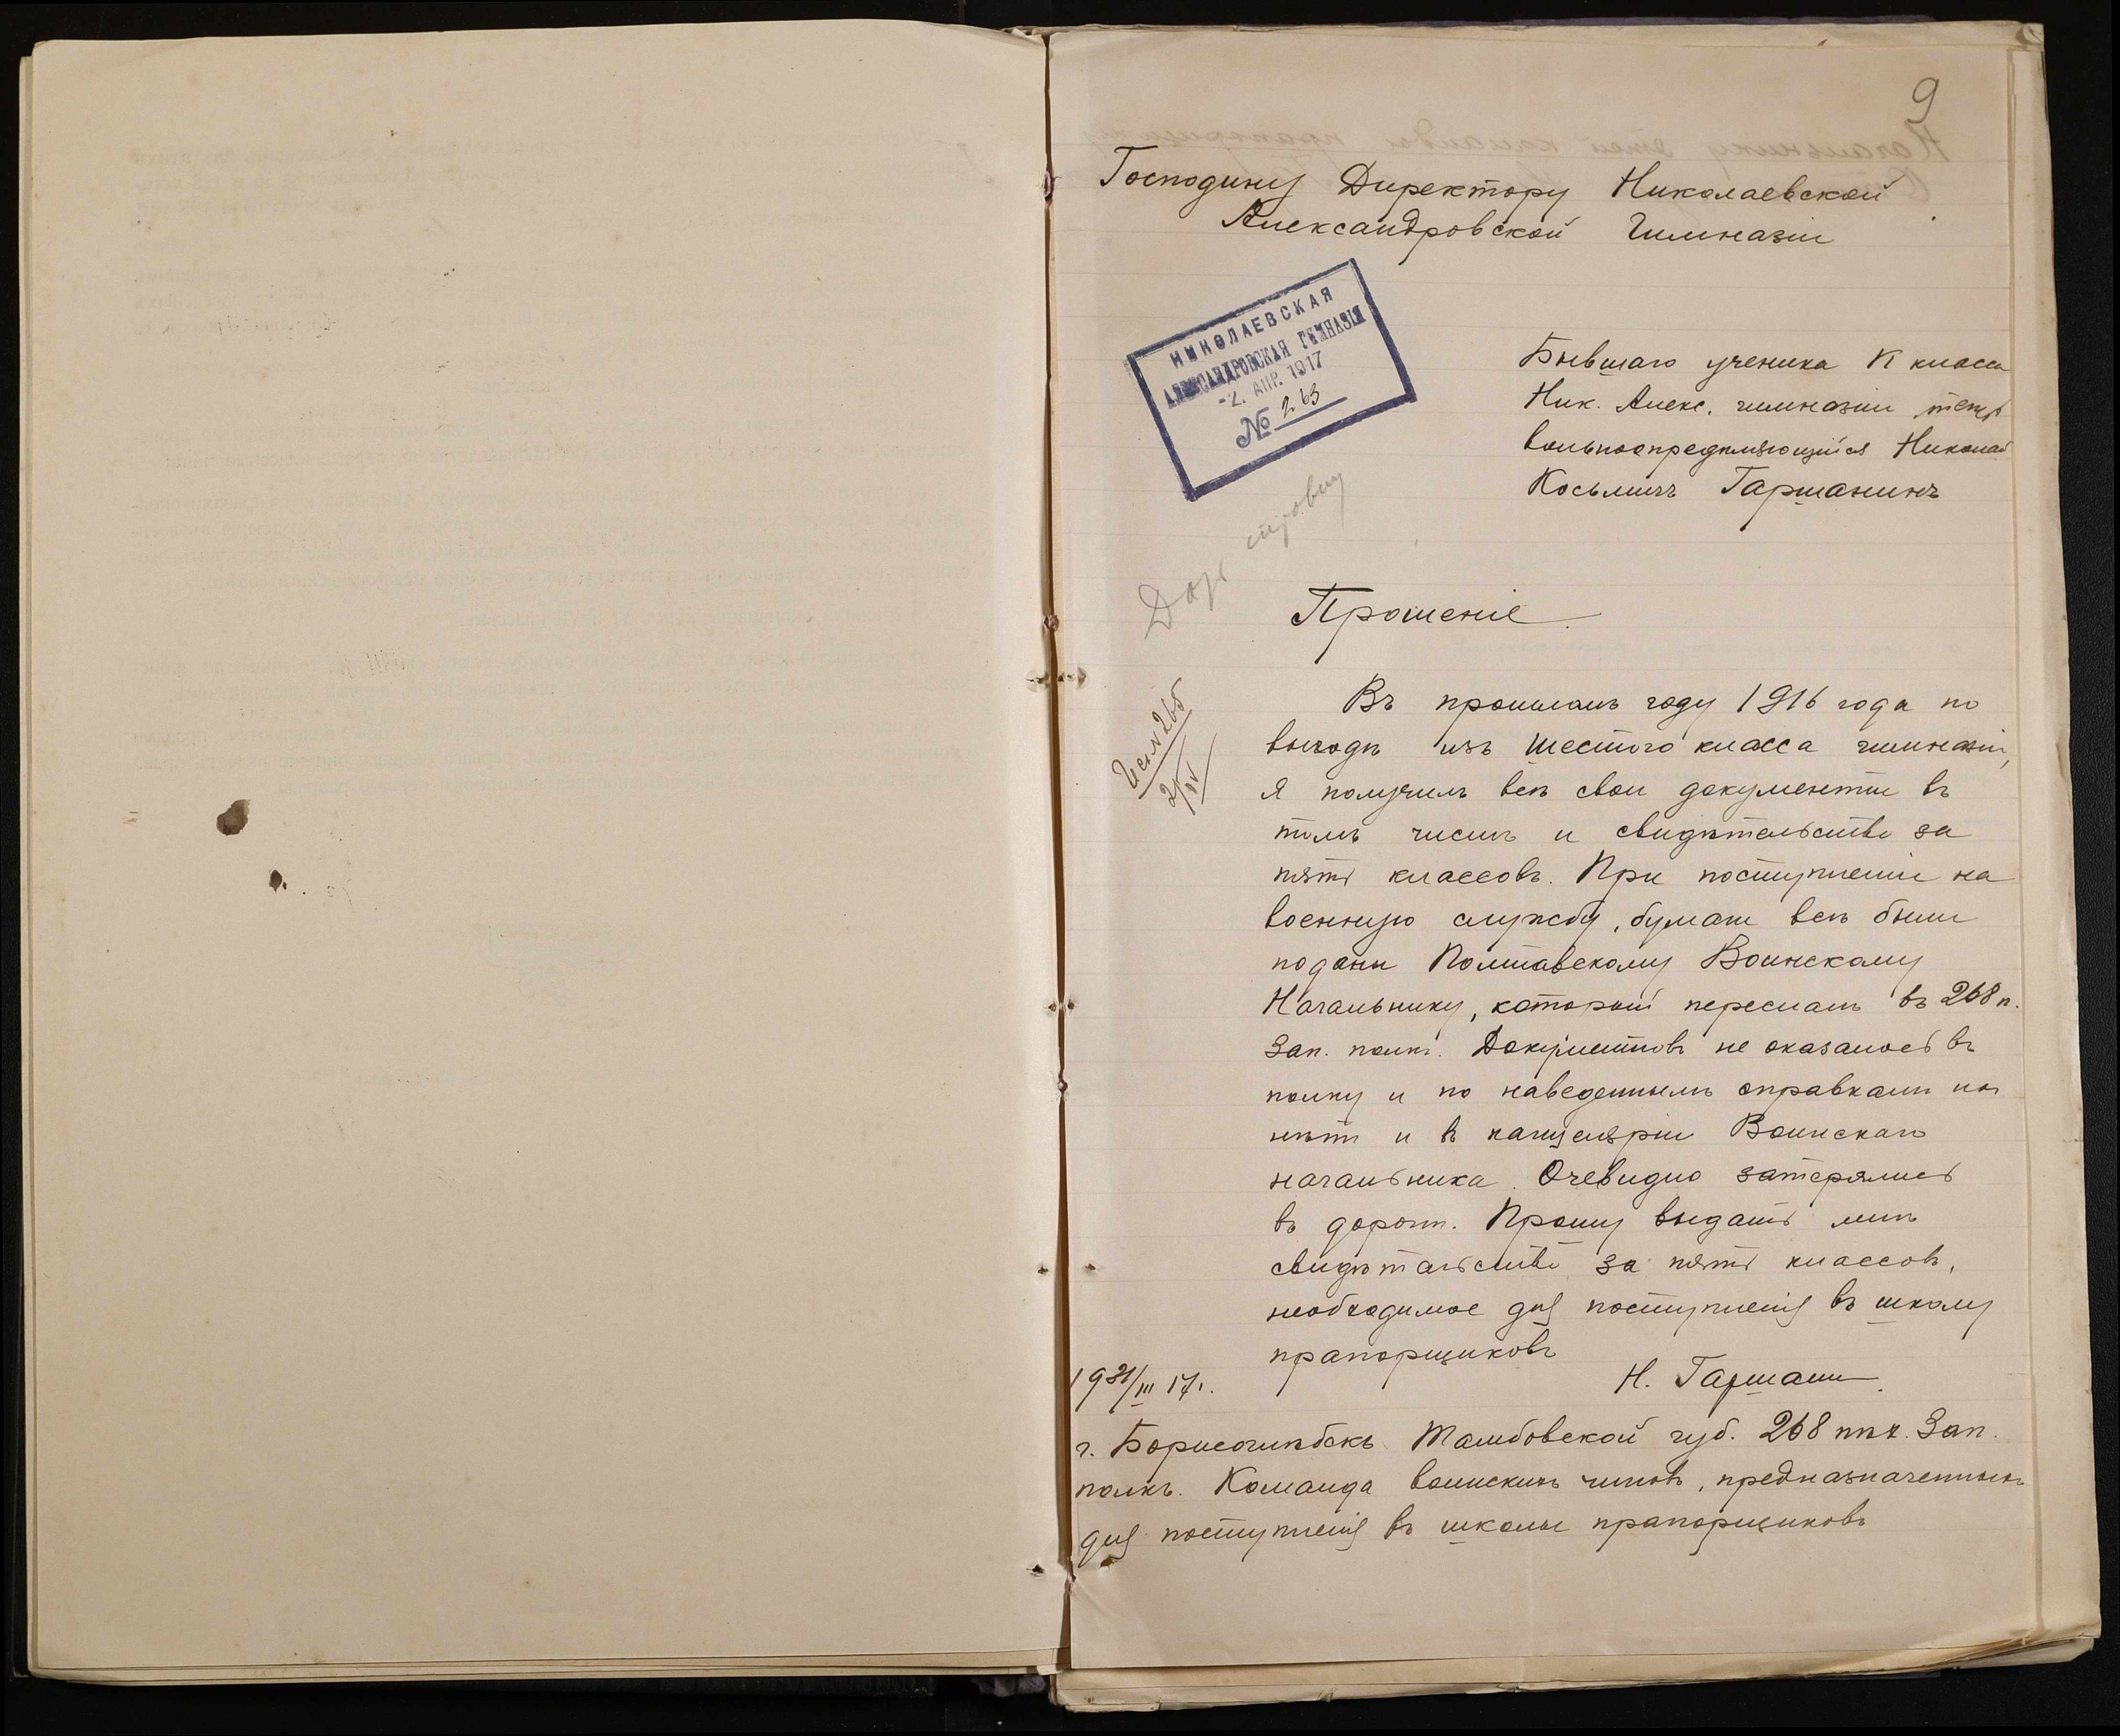 9
Господину Директору Николаевской
Александровской Гимназіи
НИКОЛАЕВСКАЯ
АЛЕКСАНДРОВСКАЯ ГИМНАЗІЯ
-2. АПР. 1917
№ 263
Бывшаго ученика VI класса
Ник. Алекс. гимназіи теперь
вольноопредѣляющійся Николай
Косьмичъ Гаршанинъ
справку
Прошеніе
Исп. № 265
2/IV
Въ прошломъ году 1916 года по
выходѣ изъ шестого класса гимназіи,
я получилъ всѣ свои документы въ
томъ числѣ и свидѣтельство за
пять классовъ. При поступленіи на
военную службу, бумаги всѣ были
поданы Полтавскому Воинскому
Начальнику, который переслалъ въ 268 п.
Зап. полкъ. Документовъ не оказалось въ
полку и по наведеннымъ справкамъ ихъ
нѣтъ и въ канцеляріи Воинскаго
начальника. Очевидно затерялись
въ дорогѣ. Прошу выдать мнѣ
свидѣтельство за пять классовъ,
необходимое для поступленія въ школу
прапорщиковъ
19 31/III 17 г.
Н. Гаршанин
г. Борисоглѣбскъ Тамбовской губ. 268 пѣх. Зап.
полкъ. Команда воинскихъ чиновъ, предназначенныхъ
для поступленія въ школы прапорщиковъ